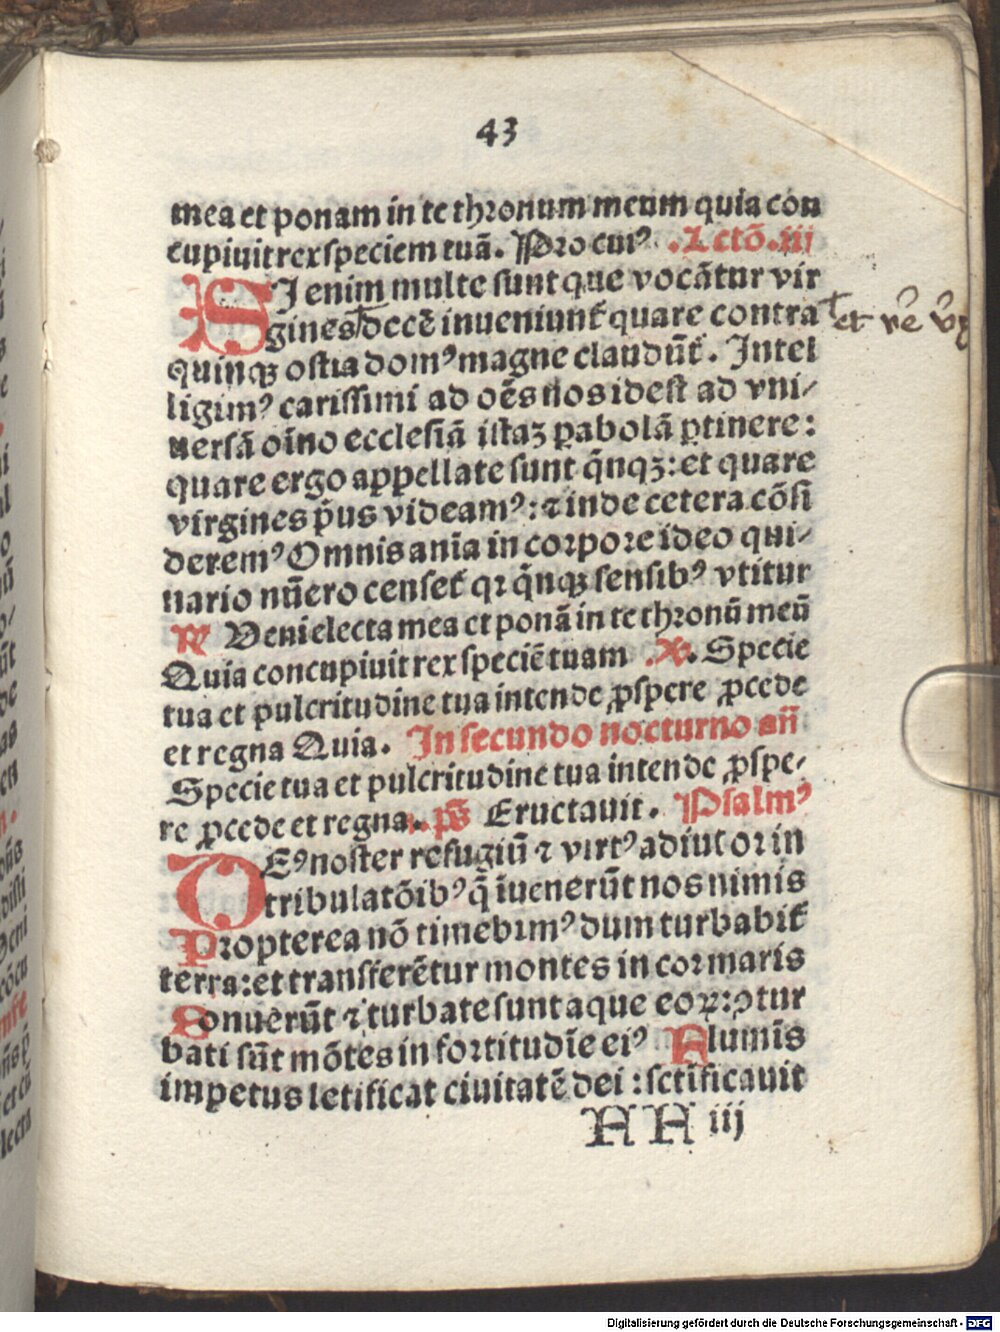 43
mea et ponam in te thronum meum quia con
cupiuit rex speciem tuã. Pro cuiꝰ. Lectõ. iij
SJ enim multe sunt que vocãtur vir
gines decẽ inueniunt̃ quare contra et
quinqꝫ ostia domꝰ magne claudũt̃. Intel
ligimꝰ carissimi ad oẽs nos idest ad vni⸗
uersã oĩno ecclesiã istaꝫ ꝑabolã ꝑtinere:
quare ergo appellate sunt q̃nqꝫ: et quare
virgines p̃us videamꝰ: ⁊ inde cetera cõsi
deremꝰ Omnis anĩa in corpore ideo qui⸗
nario nũero censet̃ qꝛ q̃nqꝫ sensibꝰ vtitur
℟ Veni electa mea et ponã in te thronũ meũ
Quia concupiuit rex speciẽ tuam. ℣. Specie
tua et pulcritudine tua intende ꝓspere ꝓcede
et regna Quia. In secundo nocturno añ
Specie tua et pulcritudine tua intende ꝓspe⸗
re ꝓcede et regna. ps̃ Eructauit. Psalmꝰ
DEꝰ noster refugiũ ⁊ virtꝰ adiutor in
tribulatõibꝰ q̃ ĩuenerũt nos nimis
Propterea nõ timebimꝰ dum turbabit̃
terra: et transferẽtur montes in cor maris
Sonuerũt ⁊ turbate sunt aque eoꝝ: ꝯtur
bati sũt mõtes in fortitudĩe eiꝰ Flumĩs
impetus letificat ciuitatẽ dei: sctĩficauit
AA iij
Digitalisierung gefördert durch die Deutsche Forschungsgemeinschaft - DFG